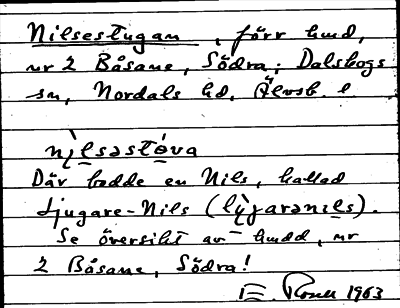 Nilsestugan, förr hmd,
nr 2 Båsane, Södra; Dalskogs
sn, Nordals hd, Älvsb. l
nìlsəstóva
Där bodde en Nils, kallad
Ljugare-Nils (lỳgarənɩls).
Se översikt av hmdd, nr
2 Båsane, Södra!
E. Rosell 1963